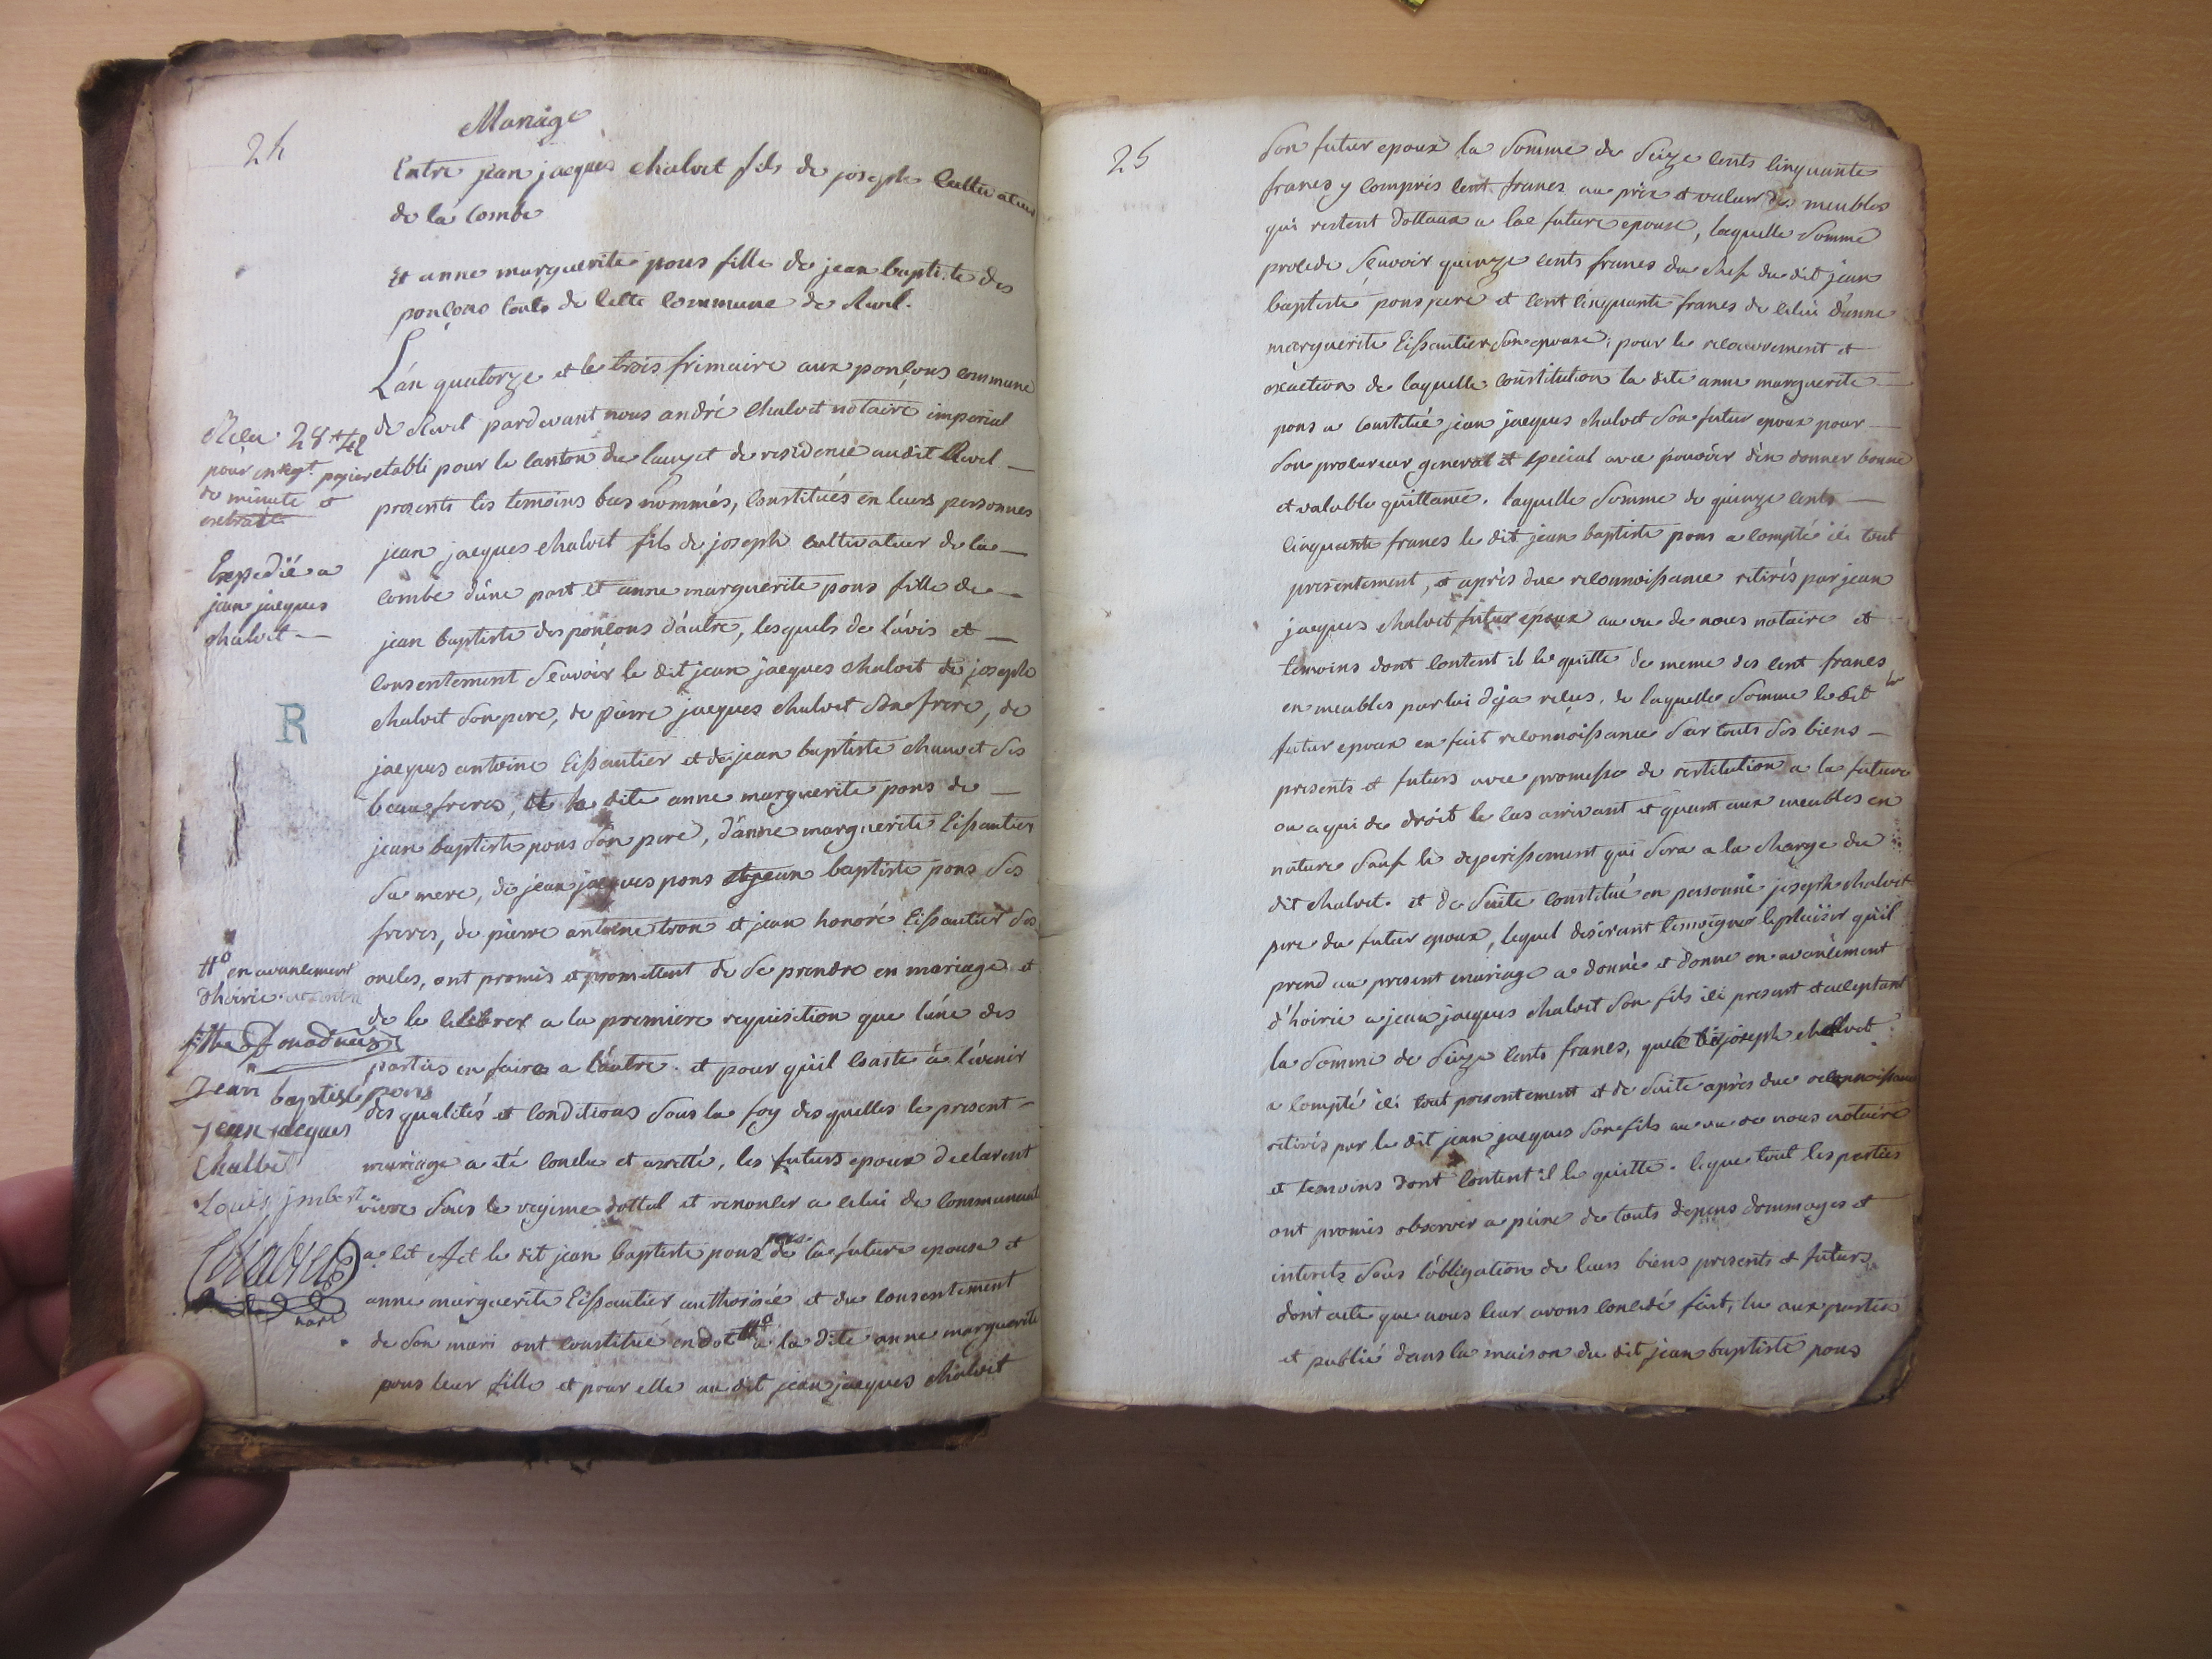 24
Mariage
Entre jean jacques chalvet fils de joseph Cultivateur
de la Combe
Et anne marguerite pons fille de jean baptiste des
ponçons touts de Cette Commune de Revel.
L'an quatorze et le trois frimaire aux ponçons commune
de Revel pardevant nous andré Chalvet notaire imperial
etabli pour le Canton du lauzet de residence audit Revel
presents les temoins bas nommés, Constitués en leurs personnes
jean jacques chalvet fils de joseph cultivateur de la
combe d'une part et anne marguerite pons fille de
jean baptiste des ponçons d'autre, lesquels de l'avis et
Consentement Sçavoir le dit jean jacques chalvet de joseph
chalvet Son pere, de pierre jacques chalvet Son frere, de
jacques antoine Eissautier et de jean baptiste chauvet Ses
beaufreres, et la dite anne marguerite pons de
jean baptiste pons Son pere, d'anne marguerite Eissautier
Sa mere, de jean jacques pons et jean baptiste pons Ses
freres, de pierre antoine tron et jean honoré Eissautier Ses
oncles, ont promis et promettent de Se prendre en mariage et
de le Celebrer a la premiere requisition que l'une des
parties en faira a l'autre. et pour qu'il Conste à l'évenir
des qualités et Conditions Sous la foy desquelles le present
mariage a été Conclu et arretté, les futurs epoux declarent
vivre Sous le regime dottal et renoncer a Celui de Communauté
a Cet effet le dit jean baptiste pons pere de la future epouse et
anne marguerite Eissautier authorisée et du Consentement
de Son mari ont Constitué en dot # a la dite anne marguerite
pons leur fille et pour elle au dit jean jacques chalvet
Recu 28 #
pour enregt. papier
de minute et
extrait
Expedié a
jean jacques
chalvet
R
# en avancement
d'hoirie
Jean baptiste pons
jean jacques
Chalvet
Louis jmbert
Chalvet
nore
25
Son futur epoux la Somme de Seize Cents Cinquante
francs y Compris Cent francs au prix et valeur des meubles
qui restent dottaux a la future epouse, laquelle Somme
procede Sçavoir quinze Cents francs du Chef du dit jean
baptiste pons pere et Cent Cinquante francs de Celui d'anne
marguerite Eissautier Son epouse; pour le recouvrement et
exaction de laquelle Constitution la dite anne marguerite
pons a Constitué jean jacques chalvet Son futur epoux pour
Son procureur general et special avec pouvoir d'en donner bonne
et valable quittance. laquelle Somme de quinze Cents
Cinquante francs le dit jean baptiste pons a Compté ici tout
presentement, et après due reconnoissance retirés par jean
jacques chalvet futur epoux au vu de nous notaire et
temoins dont Content il le quitte de meme des Cent francs
en meubles par lui deja reçus. de laquelle Somme le dit
futur epoux en fait reconnoissance Sur touts Ses biens
presents et futurs avec promesse de restitution a la future
ou a qui de droit le Cas arrivant et quant aux meubles en
nature Sauf le deperissement qui Sera a la Charge du
dit chalvet. et de Suite Constitué en personne joseph chalvet
pere du futur epoux, lequel desirant temoigner le plaisir qu'il
prend au present mariage a donné et donne en avancement
d'hoirie a jean jacques chalvet Son fils ici present et acceptant
la Somme de Seize Cents francs, que le dit joseph chalvet
a Compté ici tout presentement et de Suite après due reconnoissance
retirés par le dit jean jacques Son fils au vu de nous notaire
et temoins dont Content il le quitte. Ce que tout les parties
ont promis observer a peine de touts depens dommages et
interets Sous l'obligation de leurs biens presents et futurs
dont acte que nous leur avons Concedé fait, lu aux parties
et publié dans la maison du dit jean baptiste pons